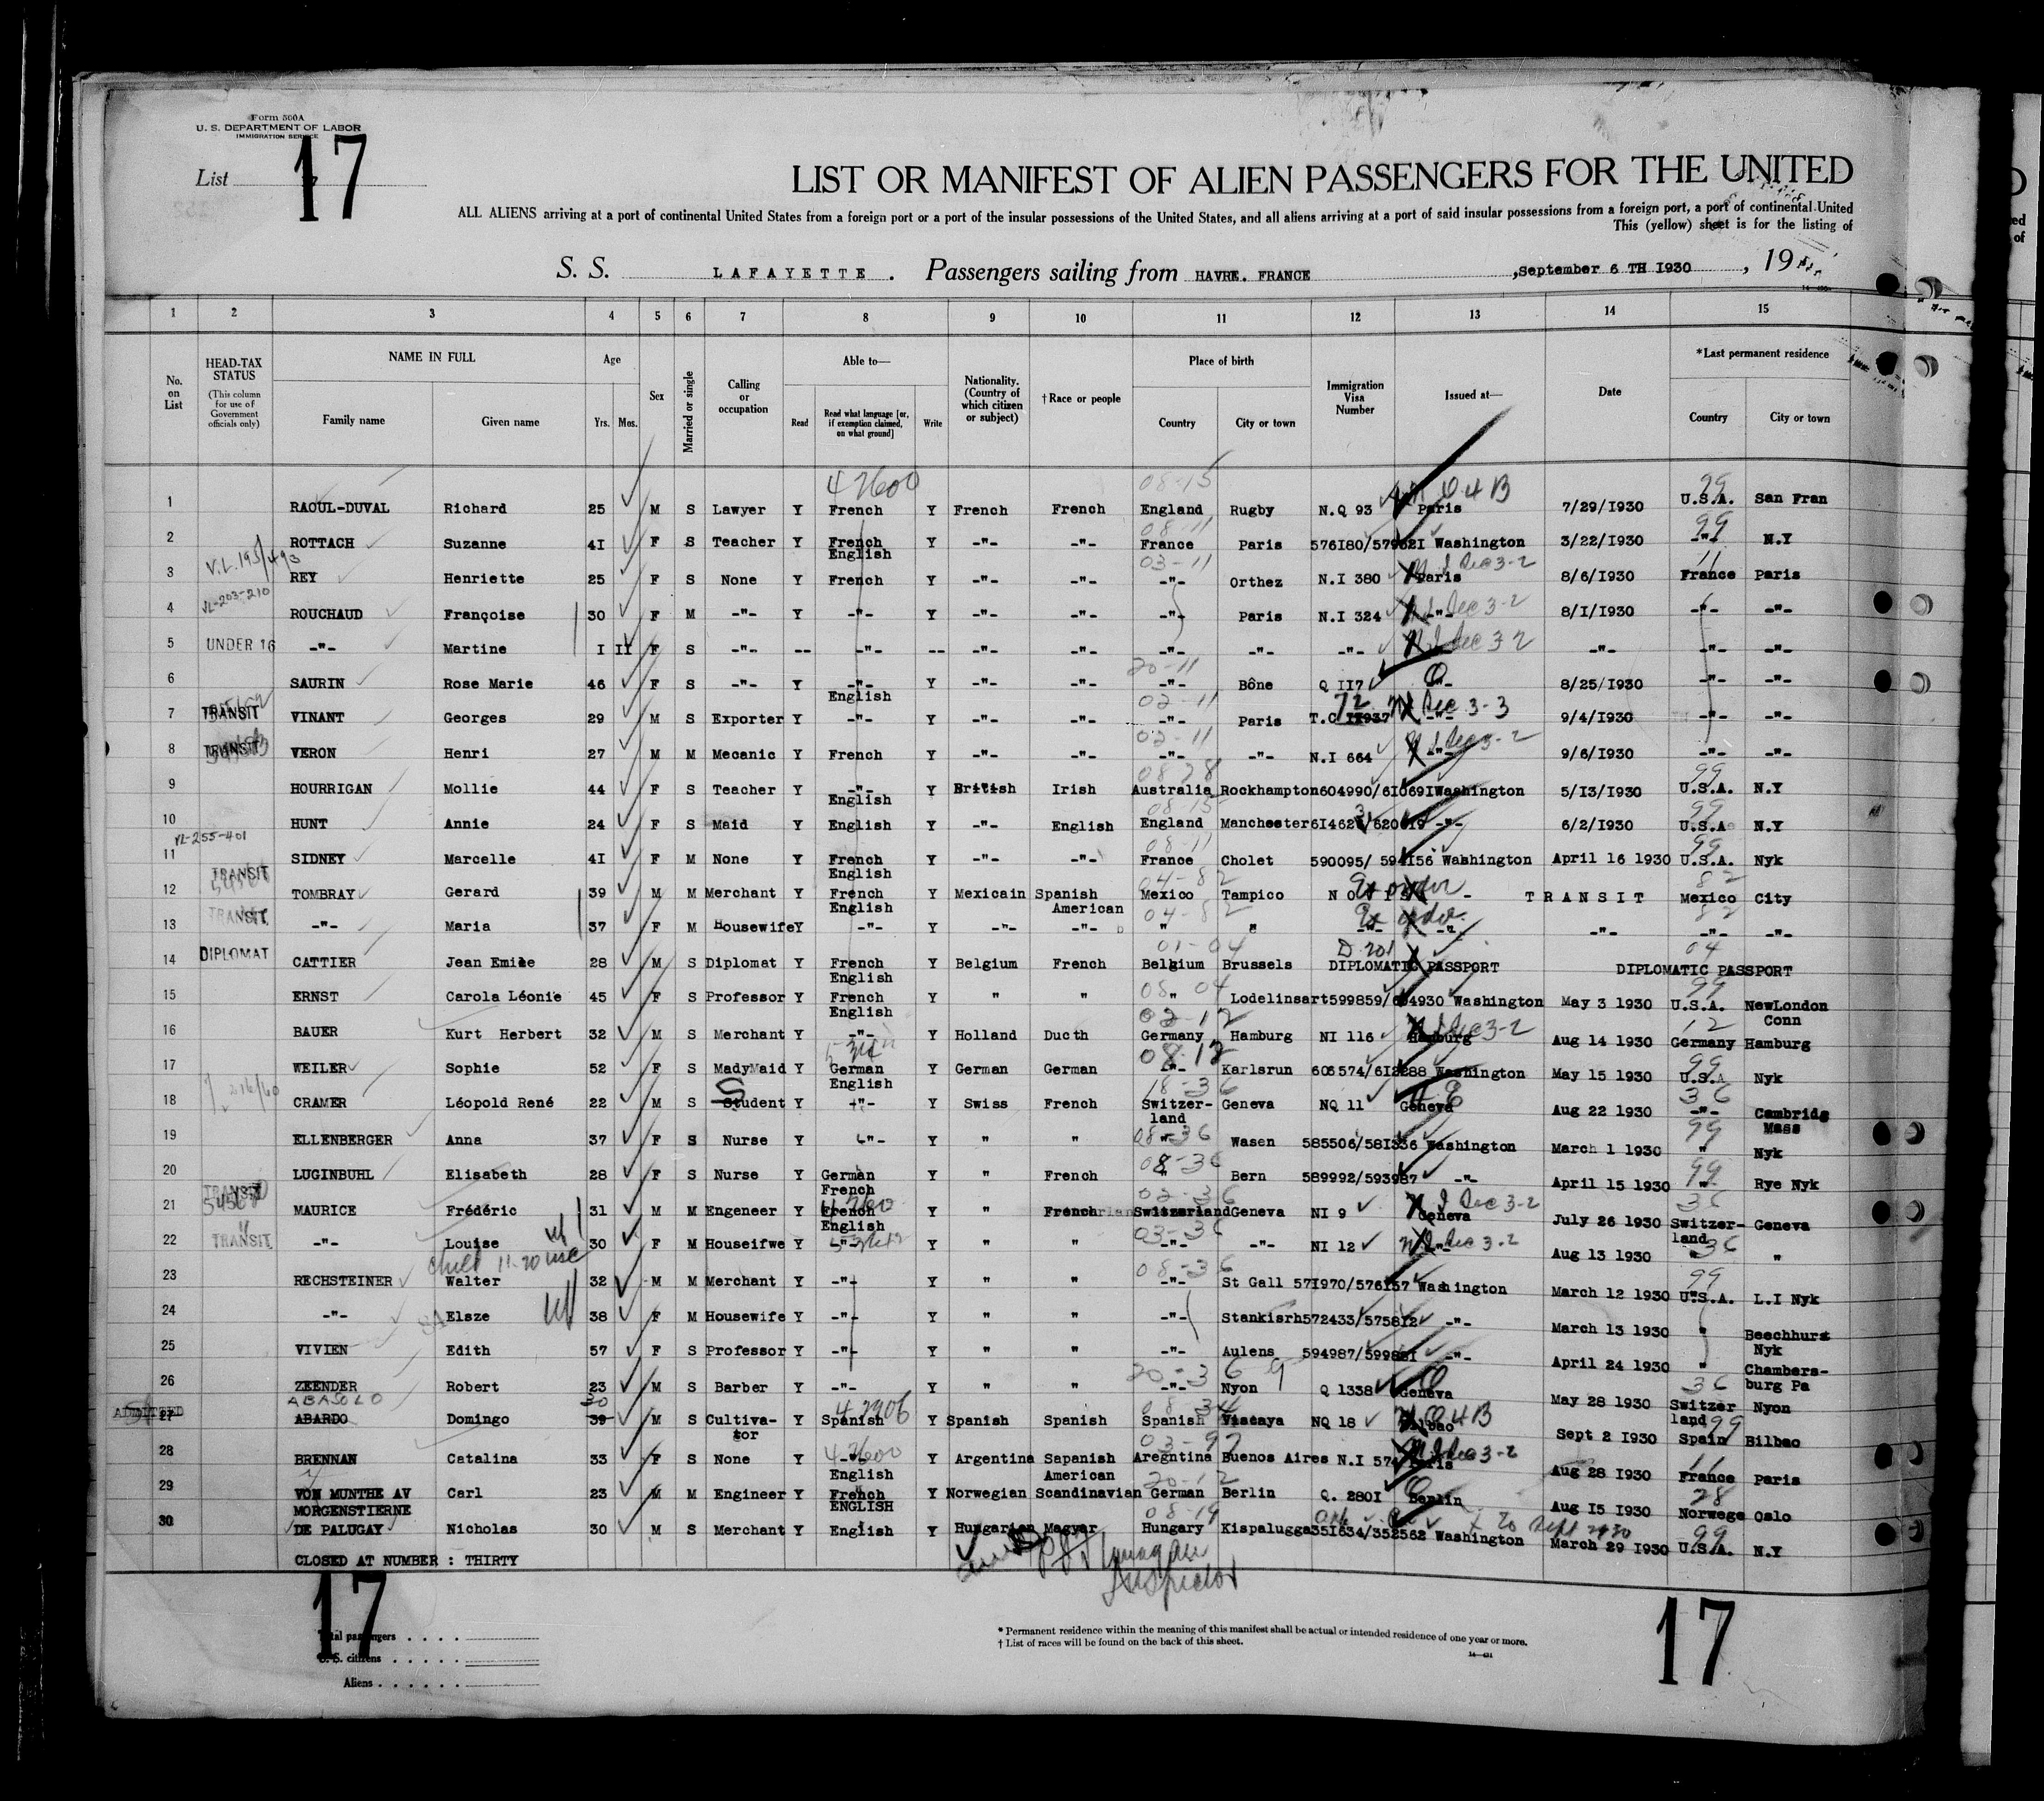 Form 500A
U. S. DEPARTMENT OF LABOR
IMMIGRATION SERVICE
List 17
LIST OR MANIFEST OF ALIEN PASSENGERS FOR THE UNITED
ALL ALIENS arriving at a port of continental United States from a foreign port or a port of the insular possessions of the United States, and all aliens arriving at a port of said insular possessions from a foreign port, a port of continental United
This (yellow) sheet is for the listing of
S. S. LAFAYETTE . Passengers sailing from HAVRE. FRANCE ,September 6 TH I930 , 19
1 2 3 4 5 6 7 8 9 10 11 12 13 14 15
No. on List HEAD-TAX STATUS (This column for use of Government officials only) NAME IN FULL Family name Given name Age Yrs. Mos. Sex Married or single Calling or occupation Able to— Read Read what language [or, if exemption claimed, on what ground] Write Nationality. (Country of which citizen or subject) †Race or people Place of birth Country City or town Immigration Visa Number Issued at— Date *Last permanent residence Country City or town
42600 08-15 99
1 RAOUL-DUVAL Richard 25 M S Lawyer Y French Y French French England Rugby N.Q 93 Paris 7/29/I930 U.S.A. San Fran
08-11 99
2 ROTTACH Suzanne 4I F S Teacher Y French English Y -"- -"- France Paris 576I80/ Washington 3/22/I930 -"- N.Y
03-11 11
3 REY Henriette 25 F S None Y French Y -"- -"- -"- Orthez N.I 380 Paris 8/6/I930 France Paris
4 ROUCHAUD Françoise 30 F M -"- Y -"- Y -"- -"- -"- Paris N.I 324 -"- 8/I/I930 -"- -"-
5 UNDER 16 -"- Martine I II F S -"- -- -"- -- -"- -"- -"- -"- -"- -"- -"- -"-
20-11
6 SAURIN Rose Marie 46 F S -"- Y -"- English Y -"- -"- -"- Bône Q II7 -"- 8/25/I930 -"- -"-
02-11
7 TRANSIT VINANT Georges 29 M S Exporter Y -"- Y -"- -"- -"- Paris T.C -"- 9/4/I930 -"- -"-
02-11
8 TRANSIT VERON Henri 27 M M Mecanic Y French Y -"- -"- -"- -"- N.I 664 -"- 9/6/I930 -"- -"-
99
9 HOURRIGAN Mollie 44 F S Teacher Y -"- English Y British Irish Australia Rockhampton 604990/6I069I Washington 5/I3/I930 U.S.A. N.Y
08-15 99
10 HUNT Annie 24 F S Maid Y English Y -"- English England Manchester -"- 6/2/I930 U.S.A N.Y
08-11 99
11 SIDNEY Marcelle 4I F M None Y French English Y -"- -"- France Cholet 590095/ 594I56 Washington April 16 1930 U.S.A. Nyk
04-82 82
12 TRANSIT TOMBRAY Gerard 39 M M Merchant Y French English Y Mexicain Spanish American Mexico Tampico TRANSIT Mexico City
04-82 82
13 TRANSIT -"- Maria 37 F M Housewife Y -"- Y -"- -"- " " -"- -"- -"- -"- -"-
01-04 D 201 04
14 DIPLOMAT CATTIER Jean Emile 28 M S Diplomat Y French English Y Belgium French Belgium Brussels DIPLOMATIC PASSPORT DIPLOMATIC PASSPORT
08 04 99
15 ERNST Carola Léonie 45 F S Professor Y French English Y " " " Lodelinsart 599859/604930 Washington May 3 1930 U.S.A. NewLondon Conn
02-12 12
16 BAUER Kurt Herbert 32 M S Merchant Y -"- Y Holland Ducth Germany Hamburg NI 116 Hamburg Aug 14 1930 Germany Hamburg
08-12 99
17 WEILER Sophie 52 F S MadyMaid Y German English Y German German -"- Karlsrun 606574/6I2288 Washington May 15 1930 U.S.A Nyk
18-36 36
18 CRAMER Léopold René 22 M S Student Y -"- Y Swiss French Switzer-land Geneva NQ 11 Geneva Aug 22 1930 -"- Cambridg Mass
08-36 99
19 ELLENBERGER Anna 37 F S Nurse Y -"- Y " " " Wasen 585506/58I336 Washington March 1 1930 " Nyk
08-36 99
20 LUGINBUHL Elisabeth 28 F S Nurse Y German French Y " French " Bern 589992/593987 -"- April 15 1930 " Rye Nyk
02-36 36
21 TRANSIT MAURICE Frédéric 31 M M Engeneer Y French English Y " French Switzerland Geneva NI 9 Geneva July 26 1930 Switzer-land Geneva
03-36 36
22 TRANSIT -"- Louise 30 F M Houseifwe Y -"- Y " " -"- -"- NI 12 -"- Aug 13 1930 " "
08-36 99
23 RECHSTEINER Walter 32 M M Merchant Y -"- Y " " -"- St Gall 57I970/576I57 Washington March 12 1930 U.S.A. L.I Nyk
24 -"- Elsze 38 F M Housewife Y -"- Y " " -"- Stankisrh 572433/5758I2 -"- March 13 1930 " Beechhurst Nyk
25 VIVIEN Edith 57 F S Professor Y -"- Y " " -"- Aulens -"- April 24 1930 " Chambers-burg Pa
20-36 36
26 ZEENDER Robert 23 M S Barber Y -"- Y " " -"- Nyon Q 1338 Geneva May 28 1930 Switzer land Nyon
ABASOLO 30 42906 99
27 ADMITTED ABARDO Domingo 39 M S Cultiva-tor Y Spanish Y Spanish Spanish Spanish Viscaya NQ 18 Bilbao Sept 2 1930 Spain Bilbao
42600 03-97 11
28 BRENNAN Catalina 33 F S None Y -"- English Y Argentina Sapanish American Aregntina Buenos Aires N.I 574 Paris Aug 28 I930 France Paris
20-12 28
29 VON MUNTHE AV MORGENSTIERNE Carl 23 M M Engineer Y French ENGLISH Y Norwegian Scandinavian German Berlin Q. 280I Berlin Aug I5 I930 Norwege Oslo
08-19 99
30 DE PALUGAY Nicholas 30 M S Merchant Y English Y Hungarian Magyar Hungary Kispalugga 35I634/352562 Washington March 29 I930 U.S.A. N.Y
CLOSED AT NUMBER : THIRTY
Inspector
17 17
Total passengers . . . .
U. S. citizens . . . . .
Aliens . . . . . .
* Permanent residence within the meaning of this manifest shall be actual or intended residence of one year or more.
† List of races will be found on the back of this sheet.